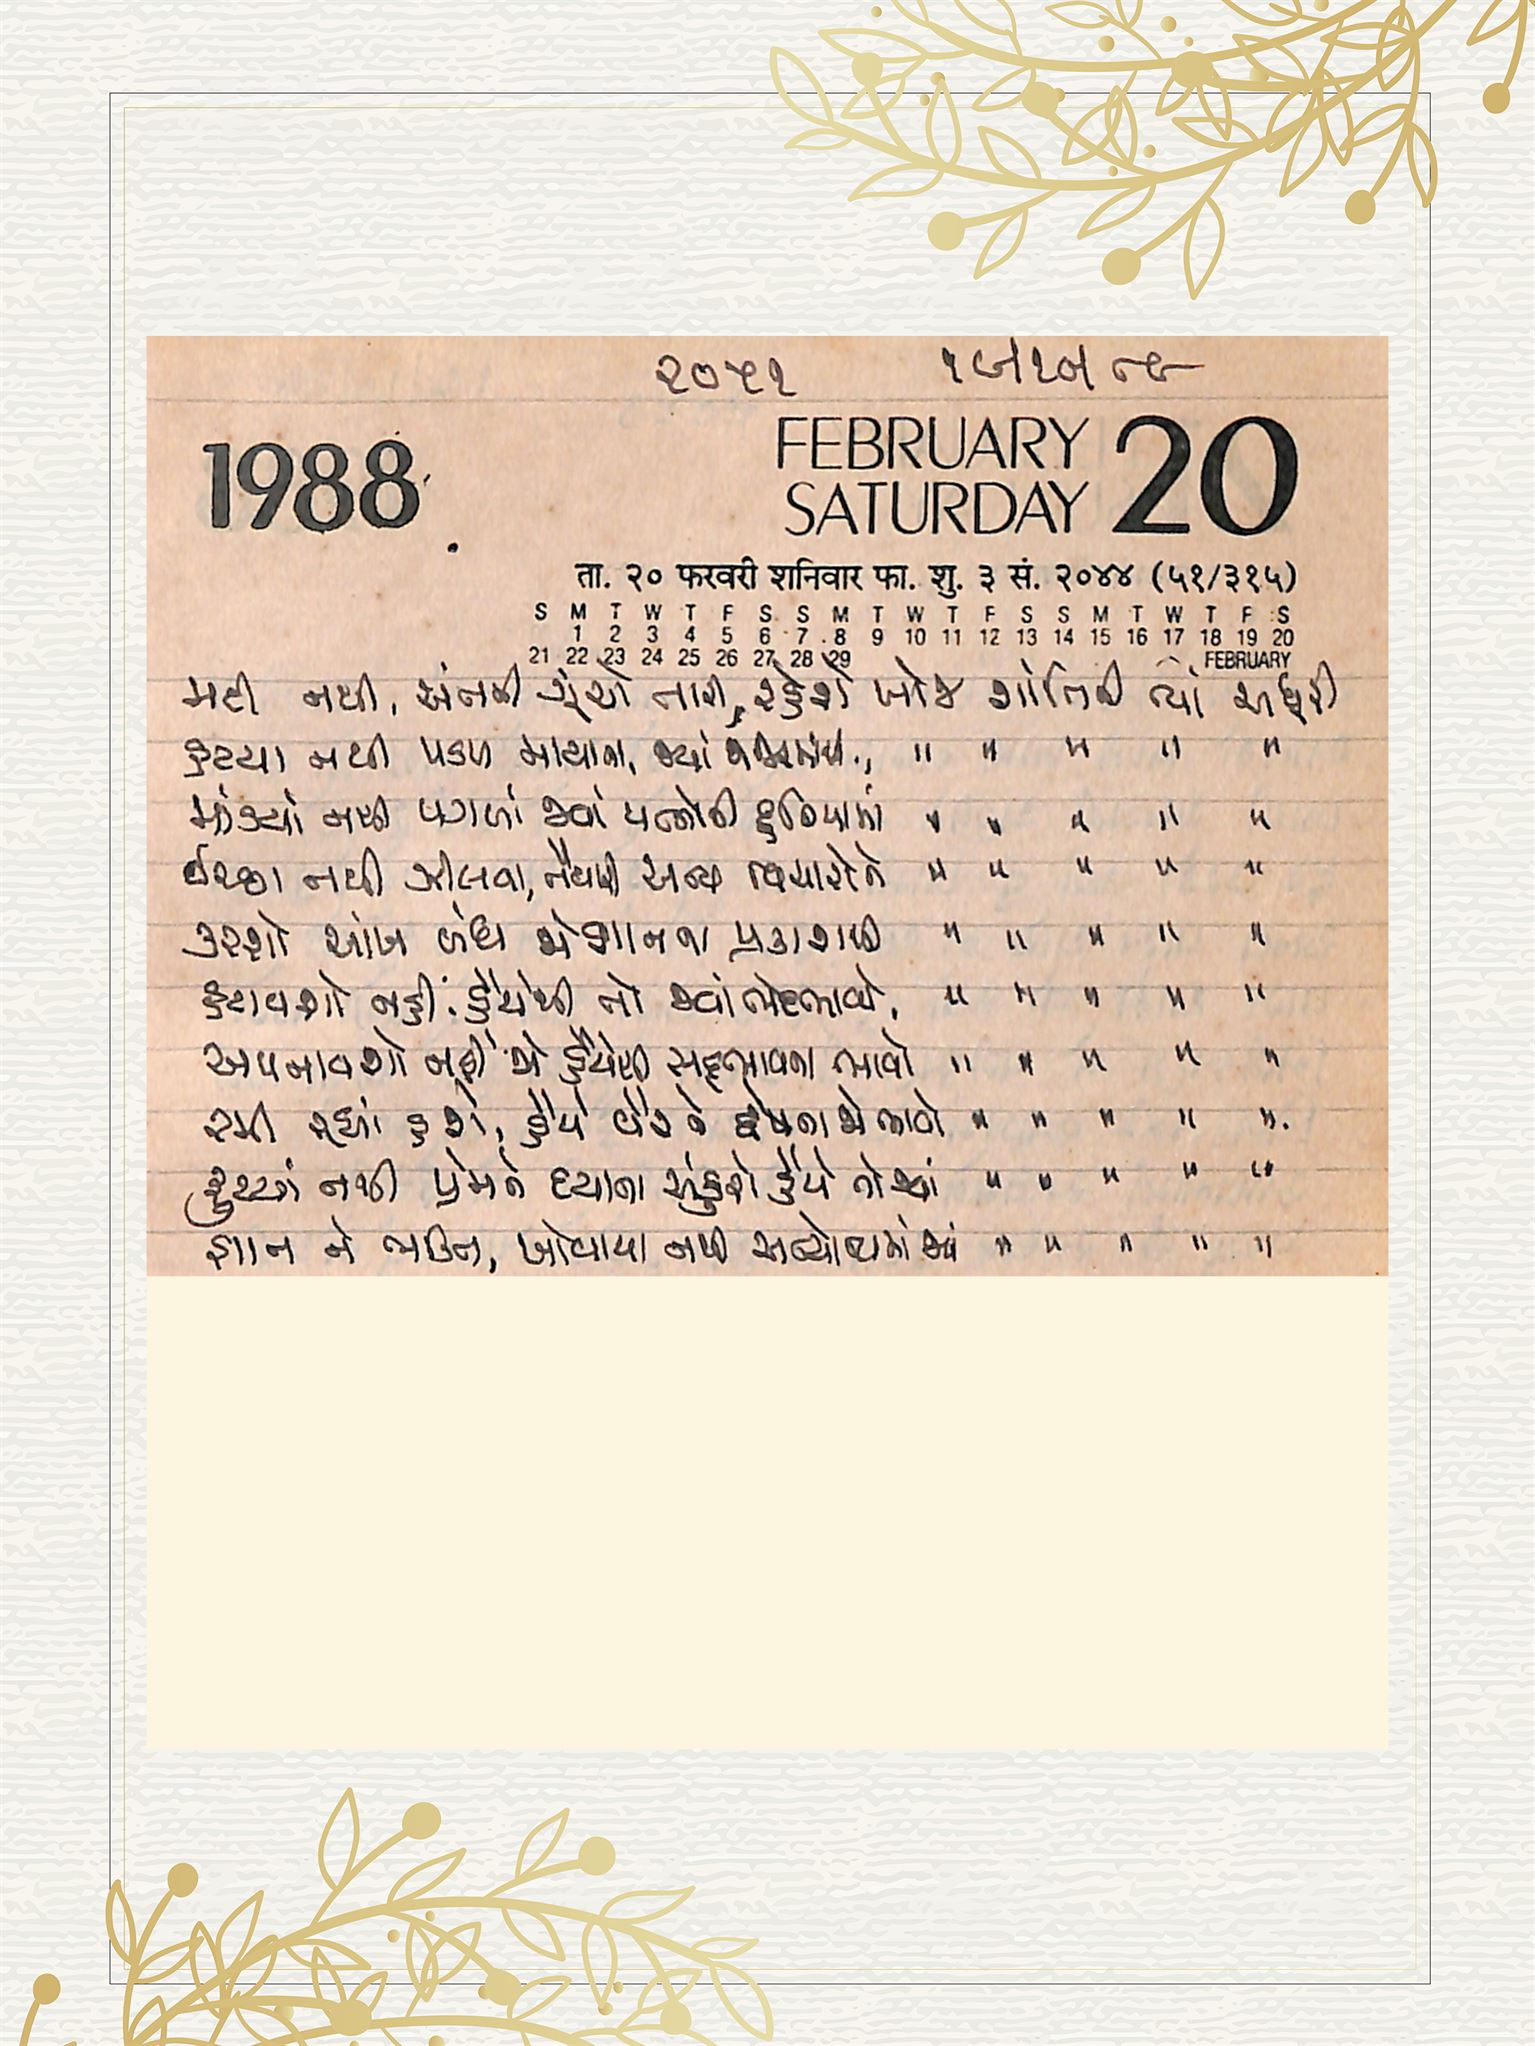 ૨૦૫૧
1988
FEBRUARY 20
SATURDAY
ता. २० फरवरी शनिवार फा. शु. ३ सं. २०४४ (५१/३१५)
S M T W T F S S M T W T F S S M T W T F S
1 2 3 4 5 6 7 8 9 10 11 12 13 14 15 16 17 18 19 20
21 22 23 24 25 26 27 28 29 FEBRUARY
મટી નથી, અંતરની ગૂંચો તારી, રહેશે ખોજ શાંતિની ત્યાં અધૂરી
હટયા નથી પડળ માયાના, જ્યાં " " " " "
માંડયાં નથી પગળાં જ્યાં પ્રભુની દુનિયામાં " " " " "
ઈચ્છા નથી ઝીલવા, તૈયારી અન્ય વિચારોને " " " " "
કરશો આંખ બંધ જો જ્ઞાનના પ્રકાશથી " " " " "
હટાવશો નહીં હૈયેથી તો જ્યાં ભેદભાવો, " " " " "
અપનાવશો નહીં જો હૈયેથી સદ્દભાવના ભાવો " " " " "
રમી રહ્યાં હશે, હૈયે વૈર ને દ્વેષના જો ભાવો " " " " ".
ફુટયાં નથી પ્રેમને દયાના અંકુરો હૈયે તો જ્યાં " " " " "
જ્ઞાન ને ભક્તિ, ખોવાયા નથી અન્યોન્યમાં જ્યાં " " " " "